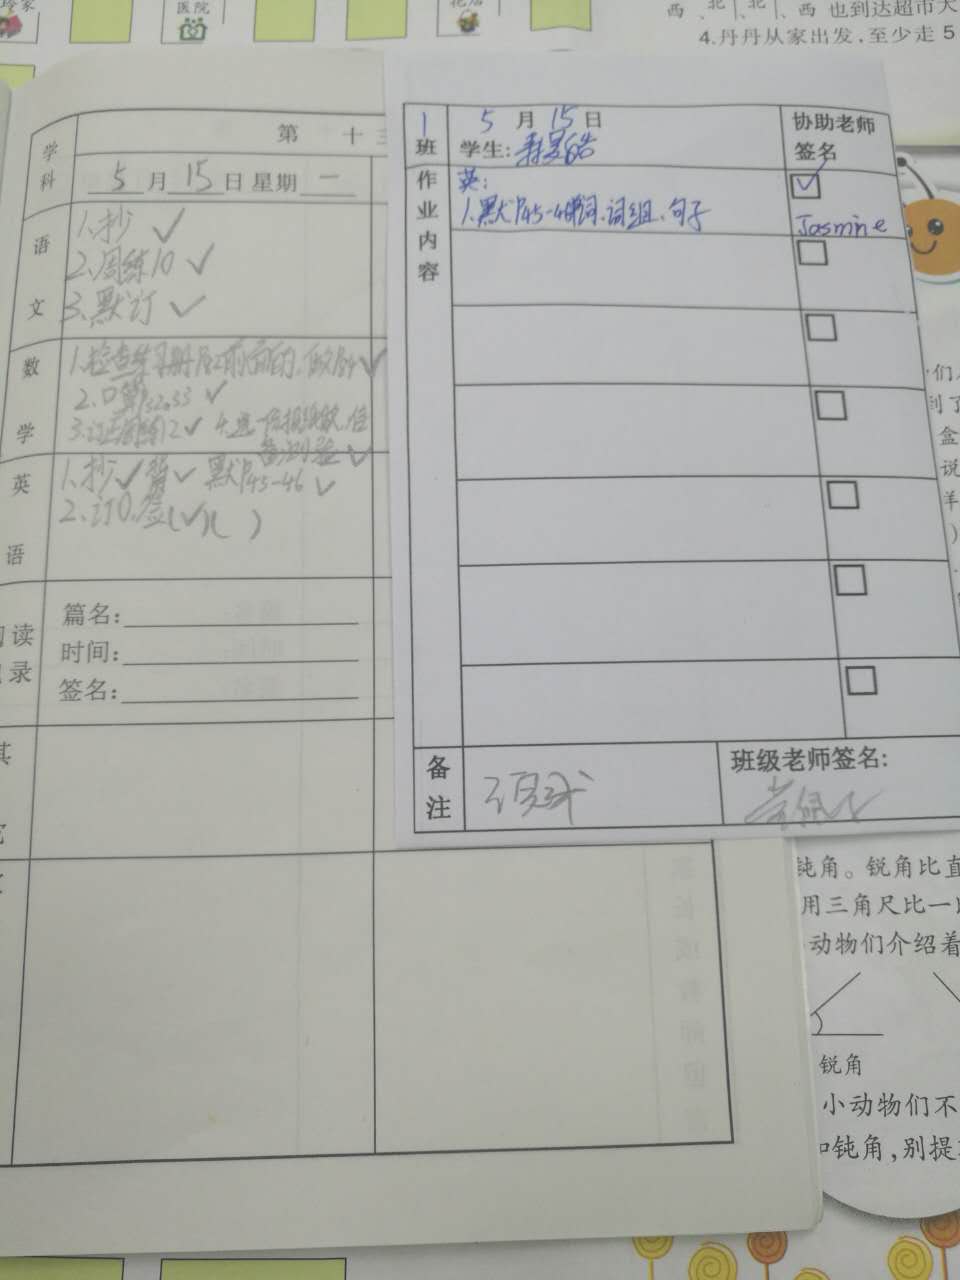 医院
西、北、北、西 也到达超市大
4.丹丹从家出发,至少走5
学科
第 十三
5月15日 星期一
语文
1.抄 ✓
2.周练10 ✓
3.默订 ✓
数学
2.口算P32.33 ✓
英语
1.抄✓ 背✓ 默P45-46 ✓
2.订0.签(✓)( )
篇名:
时间:
签名:
1班
5月15日
学生:
协助老师签名
作业内容
英:
1.默P45-46单词、词组、句子
✓
Jasmine
备注
班级老师签名:
们
到了
盒
说
羊
钝角。锐角比直
用三角尺比一比
动物们介绍着
锐角
小动物们不
和钝角,别提